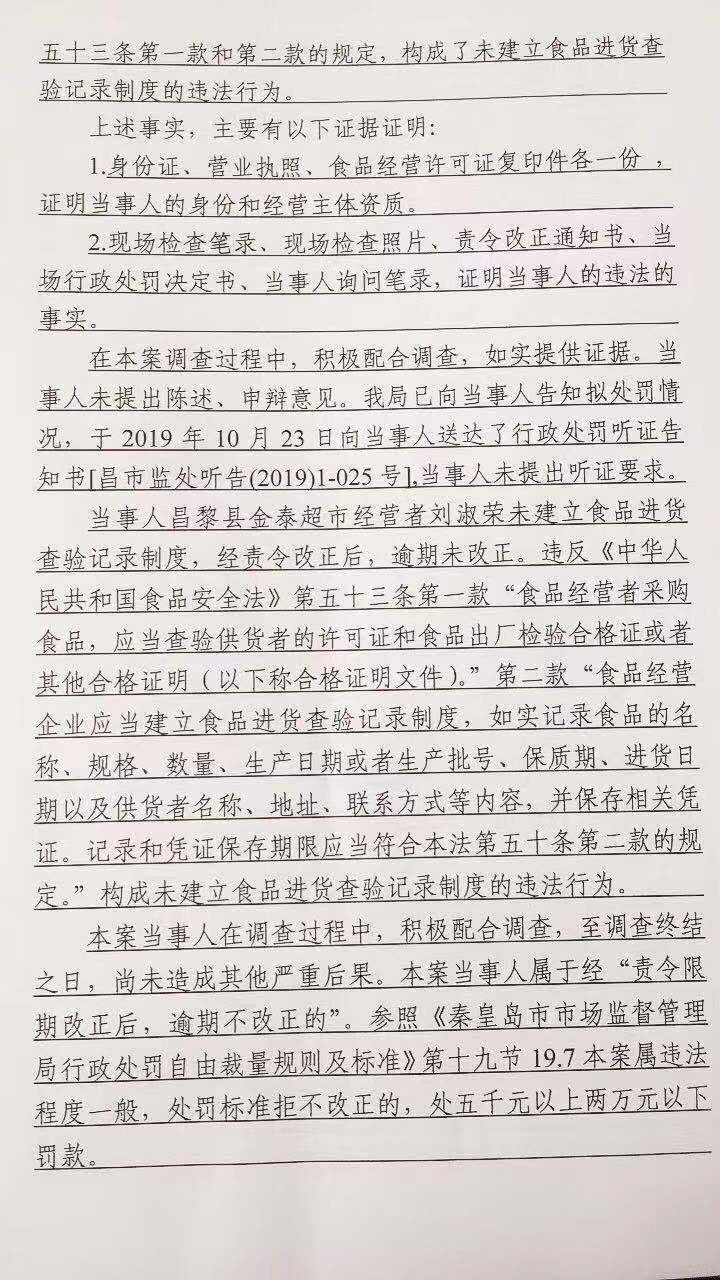 五十三条第一款和第二款的规定，构成了未建立食品进货查
验记录制度的违法行为。
上述事实，主要有以下证据证明：
1.身份证、营业执照、食品经营许可证复印件各一份 ，
证明当事人的身份和经营主体资质。
2.现场检查笔录、现场检查照片、责令改正通知书、当
场行政处罚决定书、当事人询问笔录，证明当事人的违法的
事实。
在本案调查过程中，积极配合调查，如实提供证据。当
事人未提出陈述、申辩意见。我局已向当事人告知拟处罚情
况，于 2019 年 10 月 23 日向当事人送达了行政处罚听证告
知书[昌市监处听告(2019)1-025 号],当事人未提出听证要求。
当事人昌黎县金泰超市经营者刘淑荣未建立食品进货
查验记录制度，经责令改正后，逾期未改正。违反《中华人
民共和国食品安全法》第五十三条第一款“食品经营者采购
食品，应当查验供货者的许可证和食品出厂检验合格证或者
其他合格证明（以下称合格证明文件）。”第二款“食品经营
企业应当建立食品进货查验记录制度，如实记录食品的名
称、规格、数量、生产日期或者生产批号、保质期、进货日
期以及供货者名称、地址、联系方式等内容，并保存相关凭
证。记录和凭证保存期限应当符合本法第五十条第二款的规
定。”构成未建立食品进货查验记录制度的违法行为。
本案当事人在调查过程中，积极配合调查，至调查终结
之日，尚未造成其他严重后果。本案当事人属于经“责令限
期改正后，逾期不改正的”。参照《秦皇岛市市场监督管理
局行政处罚自由裁量规则及标准》第十九节 19.7 本案属违法
程度一般，处罚标准拒不改正的，处五千元以上两万元以下
罚款。